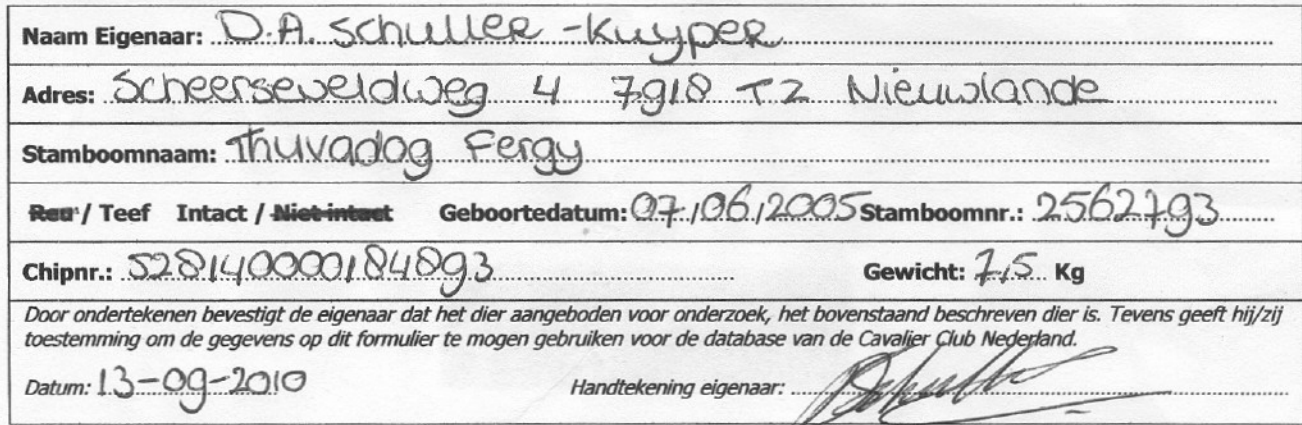 Naam Eigenaar: D.A. Schuller - Kuyper
Adres: Scheerseveldweg 4 7918 TZ Nieuwlande
Stamboomnaam: Thuvadog Fergy
Reu / Teef Intact / Niet intact Geboortedatum: 07/06/2005 Stamboomnr.: 2562793
Chipnr.: 528140000184893 Gewicht: 7,5 Kg
Door ondertekenen bevestigt de eigenaar dat het dier aangeboden voor onderzoek, het bovenstaand beschreven dier is. Tevens geeft hij/zij
toestemming om de gegevens op dit formulier te mogen gebruiken voor de database van de Cavalier Club Nederland.
Datum: 13-09-2010 Handtekening eigenaar: